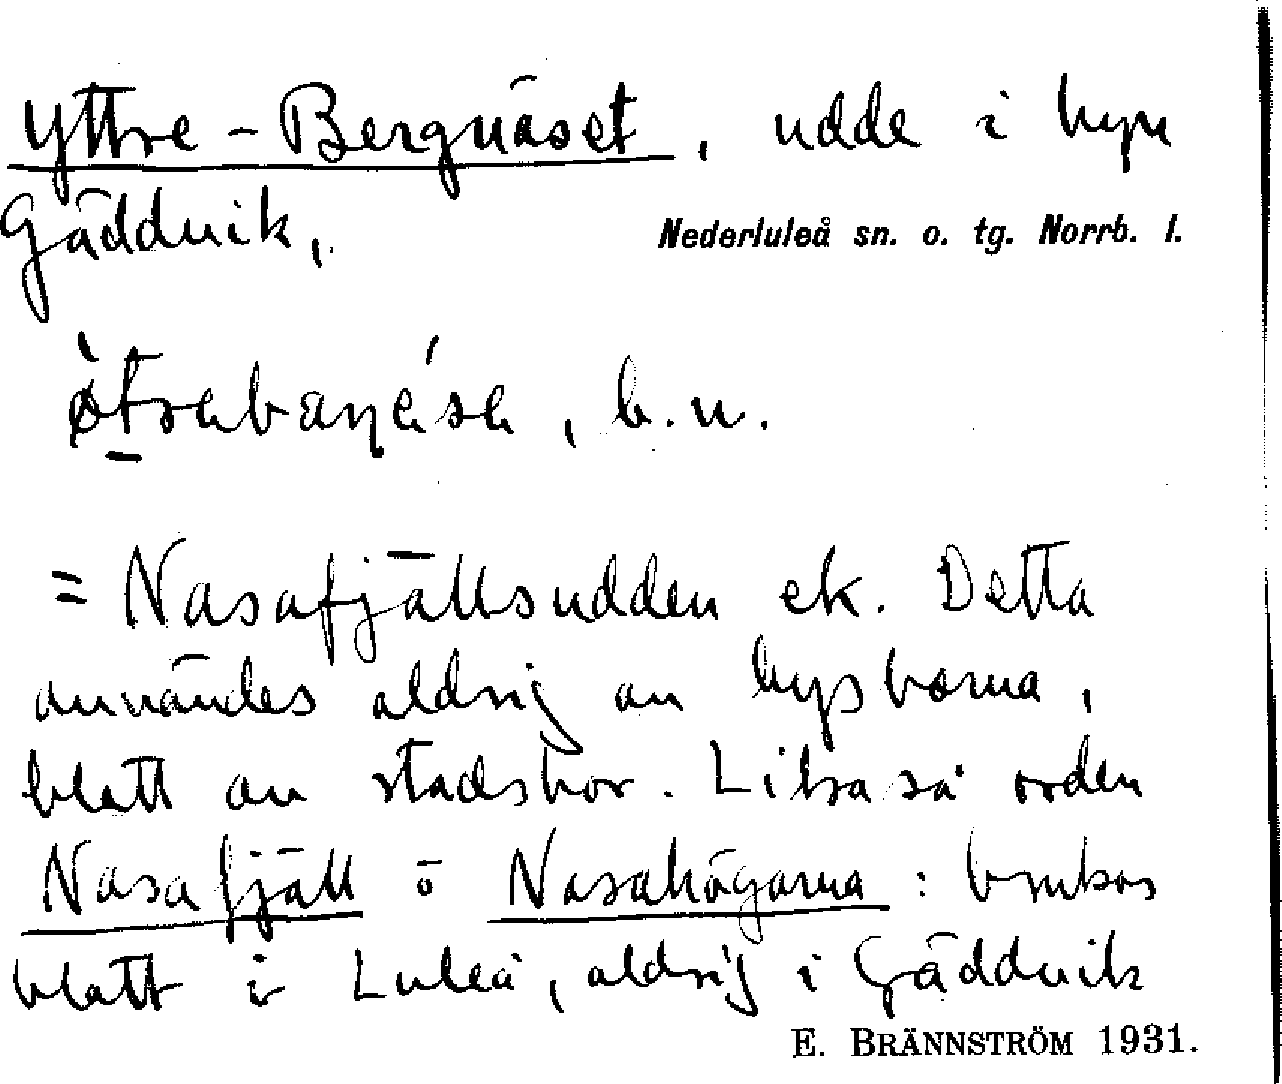 Yttre-Bergnäset, udde i byn
Gäddvik, Nederluleå sn. o. tg. Norrb. l.
b. u.
= Nasafjällsudden ek. Detta
användes aldrig av bysborna,
blott av stadsbor. Likaså orden
Nasafjäll o Nasahögarna: brukas
blott i Luleå, aldrig i Gäddvik
E. BRÄNNSTRÖM 1931.